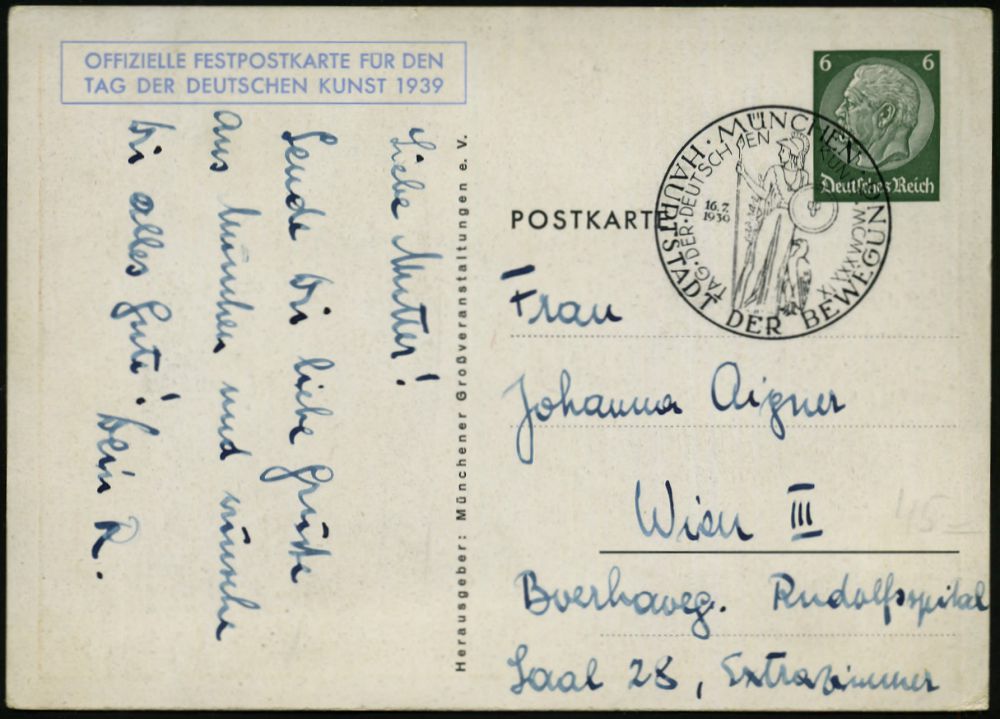 OFFIZIELLE FESTPOSTKARTE FÜR DEN
TAG DER DEUTSCHEN KUNST 1939
Liebe Mutter!
Sende dir liebe Grüße
aus München und wünsche
dir alles Gute! Dein R.
Herausgeber: Münchener Großveranstaltungen e. V.
POSTKARTE
6 6
Deutsches Reich
MÜNCHEN
HAUPTSTADT DER BEWEGUNG
TAG·DER·DEUTSCHEN KUNST
16.7.
Frau
Johanna Aigner
Wien III
Boerhaveg. Rudolfsspital
Saal 28, Extrazimmer
45